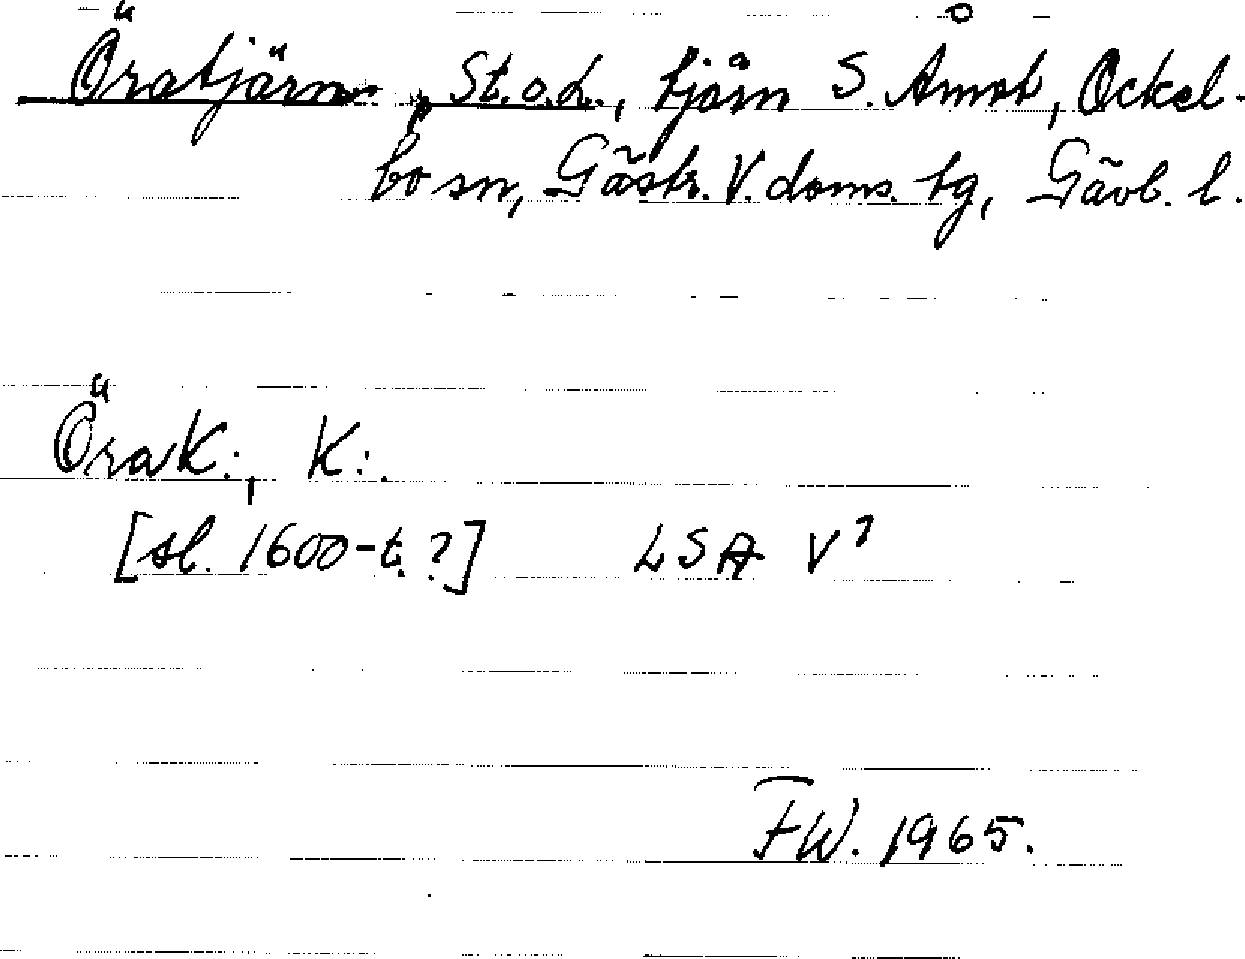 Öratjärn, St.o.L., tjärn S. Åmot, Ockel-
bo sn, Gästr. V. doms. tg, Gävl. l.
ÖraK:, K:.
[sl. 1600-t.?] LSA V?
FW. 1965.